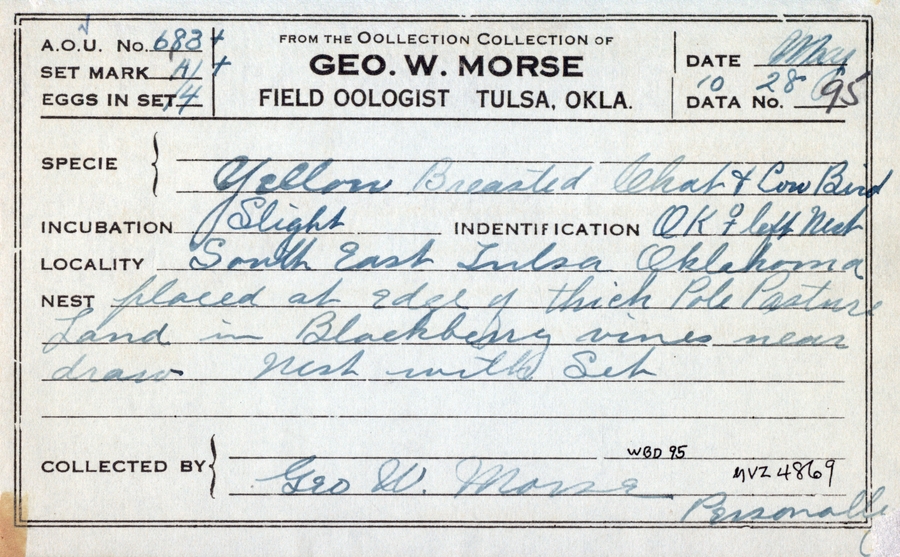 A.O.U. No. 683+
SET MARK A/+
EGGS IN SET 1/4
FROM THE OOLLECTION COLLECTION OF
GEO. W. MORSE
FIELD OOLOGIST TULSA, OKLA.
DATE May
10 28
DATA No. 95
SPECIE
Yellow Breasted Chat & Cow Bird
INCUBATION Slight INDENTIFICATION OK ♀ left Nest
LOCALITY South East Tulsa Oklahoma
NEST placed at edge of thick Pole Pasture
Land in Blackberry vines near
draw Nest with Set
COLLECTED BY Geo W. Morse
WBD 95
MVZ 4869
Personally